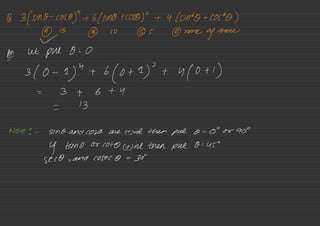 Q 3(sinθ-cosθ)⁴ + 6(sinθ+cosθ)² + 4(sin⁶θ+cos⁶θ)
Ⓐ 13 Ⓑ 10 Ⓒ 5 Ⓓ none of these
let put θ=0
3(0-1)⁴ + 6(0+1)² + 4(0+1)
= 3 + 6 + 4
= 13
Note:- sinθ and cosθ are then put θ=0° or 90°
if tanθ or cotθ then put θ=45°
secθ and cosecθ = 30°